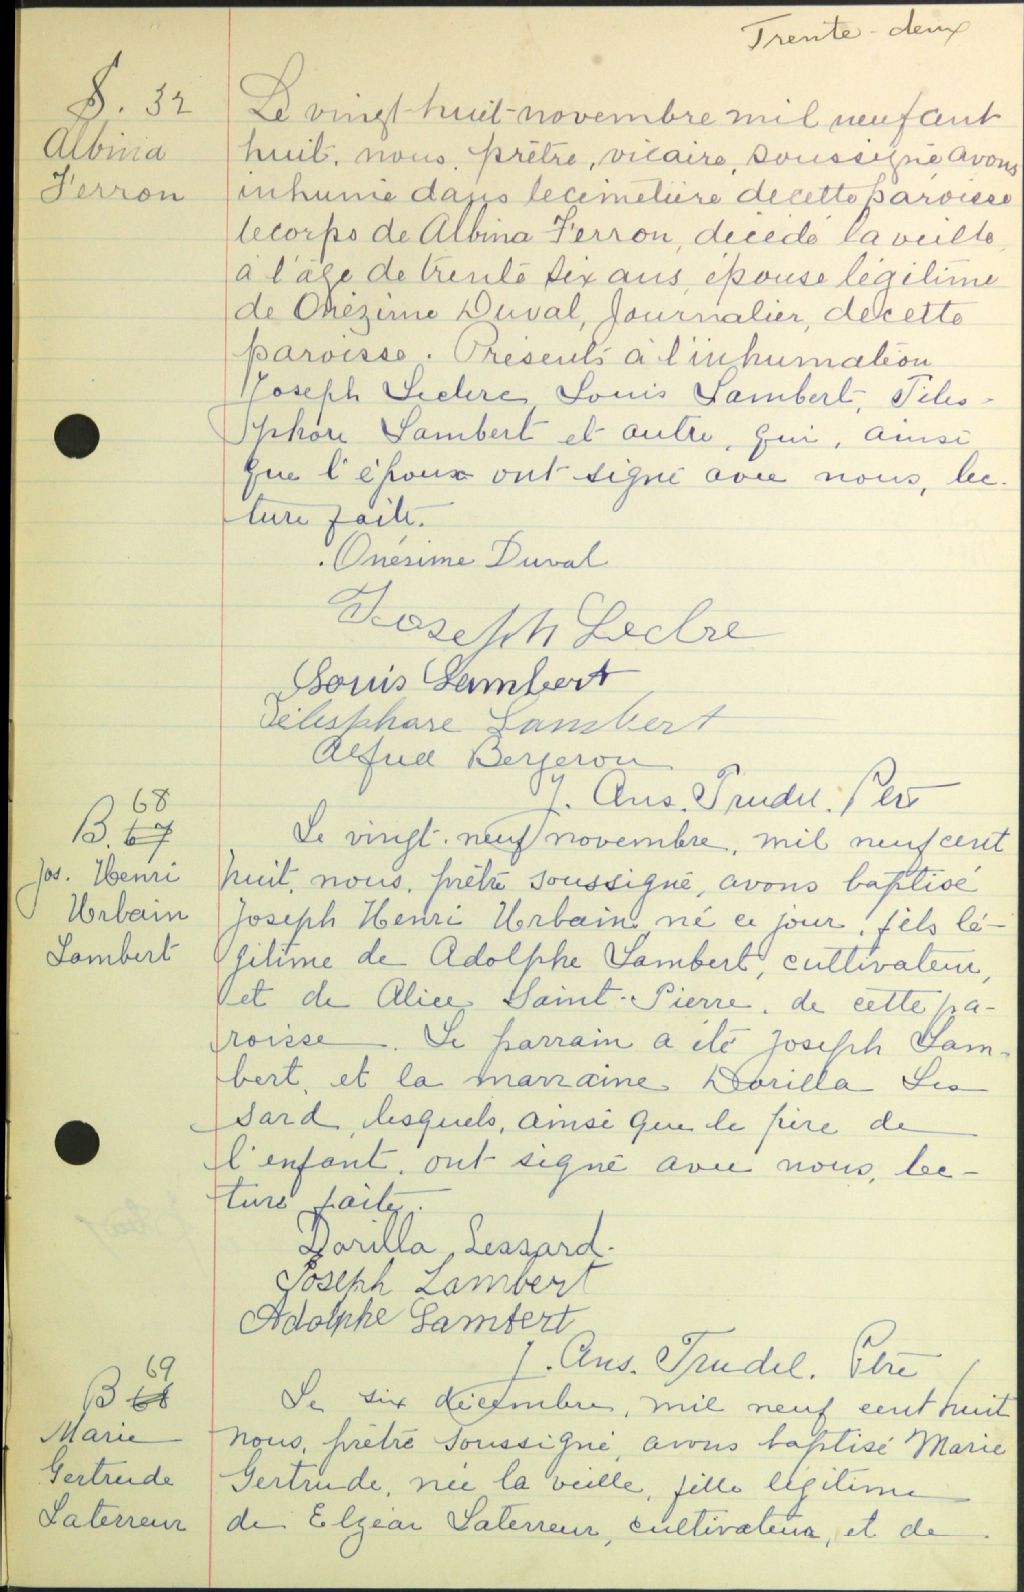 Trente-deux
S. 32
Albina
Ferron
Le vingt-huit-novembre mil neuf cent
huit, nous, prêtre, vicaire, soussigné avons
inhumé dans le cimetière de cette paroisse
le corps de Albina Ferron, décédé la veille,
à l'âge de trente six ans, épouse légitime
de Onézime Duval, Journalier, de cette
paroisse. Présents à l'inhumation
Joseph Leclerc, Louis Lambert, Téles-
phore Lambert et autre, qui, ainsi
que l'époux ont signé avec nous, lec-
ture faite.
Onésime Duval
Joseph Leclre
Louis Lambert
Télesphare Lambert
Alfred Bergeron
J. Ans. Trudel. Ptre
68
B. 67
Jos. Henri
Urbain
Lambert
Le vingt-neuf novembre, mil neuf cent
huit, nous, prêtre soussigné, avons baptisé
Joseph Henri Urbain, né ce jour, fils lé-
gitime de Adolphe Lambert, cultivateur,
et de Alice Saint-Pierre, de cette pa-
roisse. Le parrain a été Joseph Lam-
bert, et la marraine Dorilla Les
sard, lesquels, ainsi que le père de
l'enfant, ont signé avec nous, lec-
ture faite.
Dorilla Lessard.
Joseph Lambert
Adolphe Lambert
J. Ans. Trudel. Ptre
69
B 68
Marie
Gertrude
Laterreur
Le six décembre, mil neuf cent huit
nous, prêtre soussigné, avons baptisé Marie
Gertrude, née la veille, fille légitime
de Elzéar Laterreur, cultivateur, et de